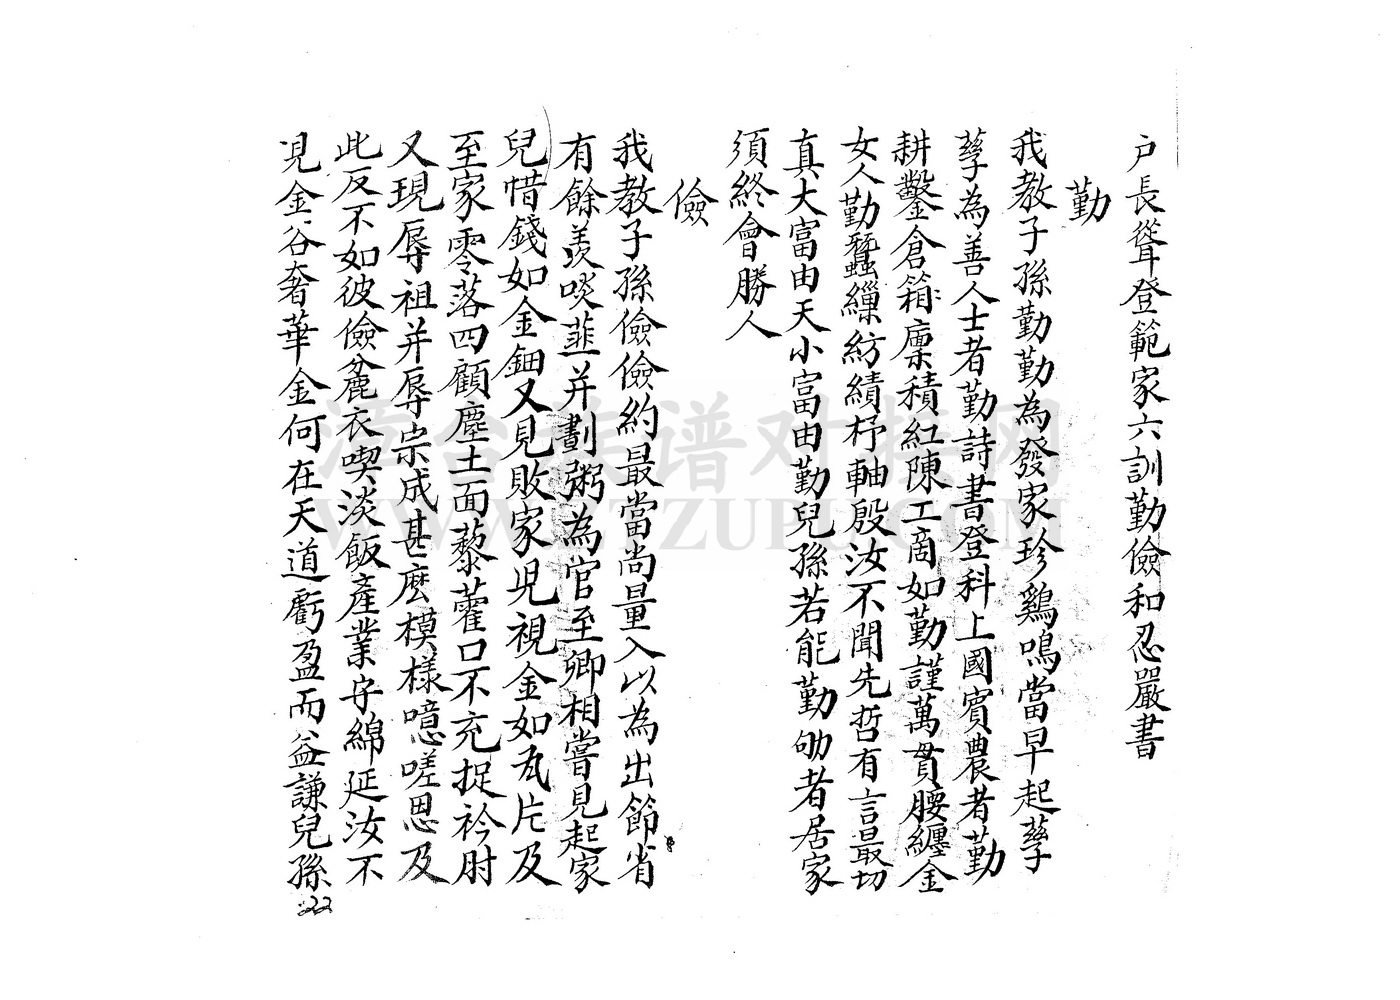 户長聳登範家六訓勤儉和忍嚴書
勤
我教子孫勤勤為發家珍鷄鳴當早起孳
孳為善人士者勤詩書登科上國賓農者勤
耕鑿倉箱廩積紅陳工商如勤謹萬貫腰纏金
女人勤蠶繅紡績杼軸殷汝不聞先哲有言最切
真大富由天小富由勤兒孫若能勤劬者居家
須終會勝人
儉
我教子孫儉儉約最當尚量入以為出節省
有餘羨啖韮并劃粥為官至卿相嘗見起家
兒惜錢如金鈿又見敗家児視金如瓦片及
至家零落四顧塵土面藜藿口不充捉衿肘
又現辱祖并辱宗成甚麽模樣噫嗟思及
此反不如彼儉麄衣喫淡飯產業守綿延汝不
見金谷奢華金何在天道虧盈而益謙兒孫
22
源台族谱对接网
WWW.YTZUPU.COM